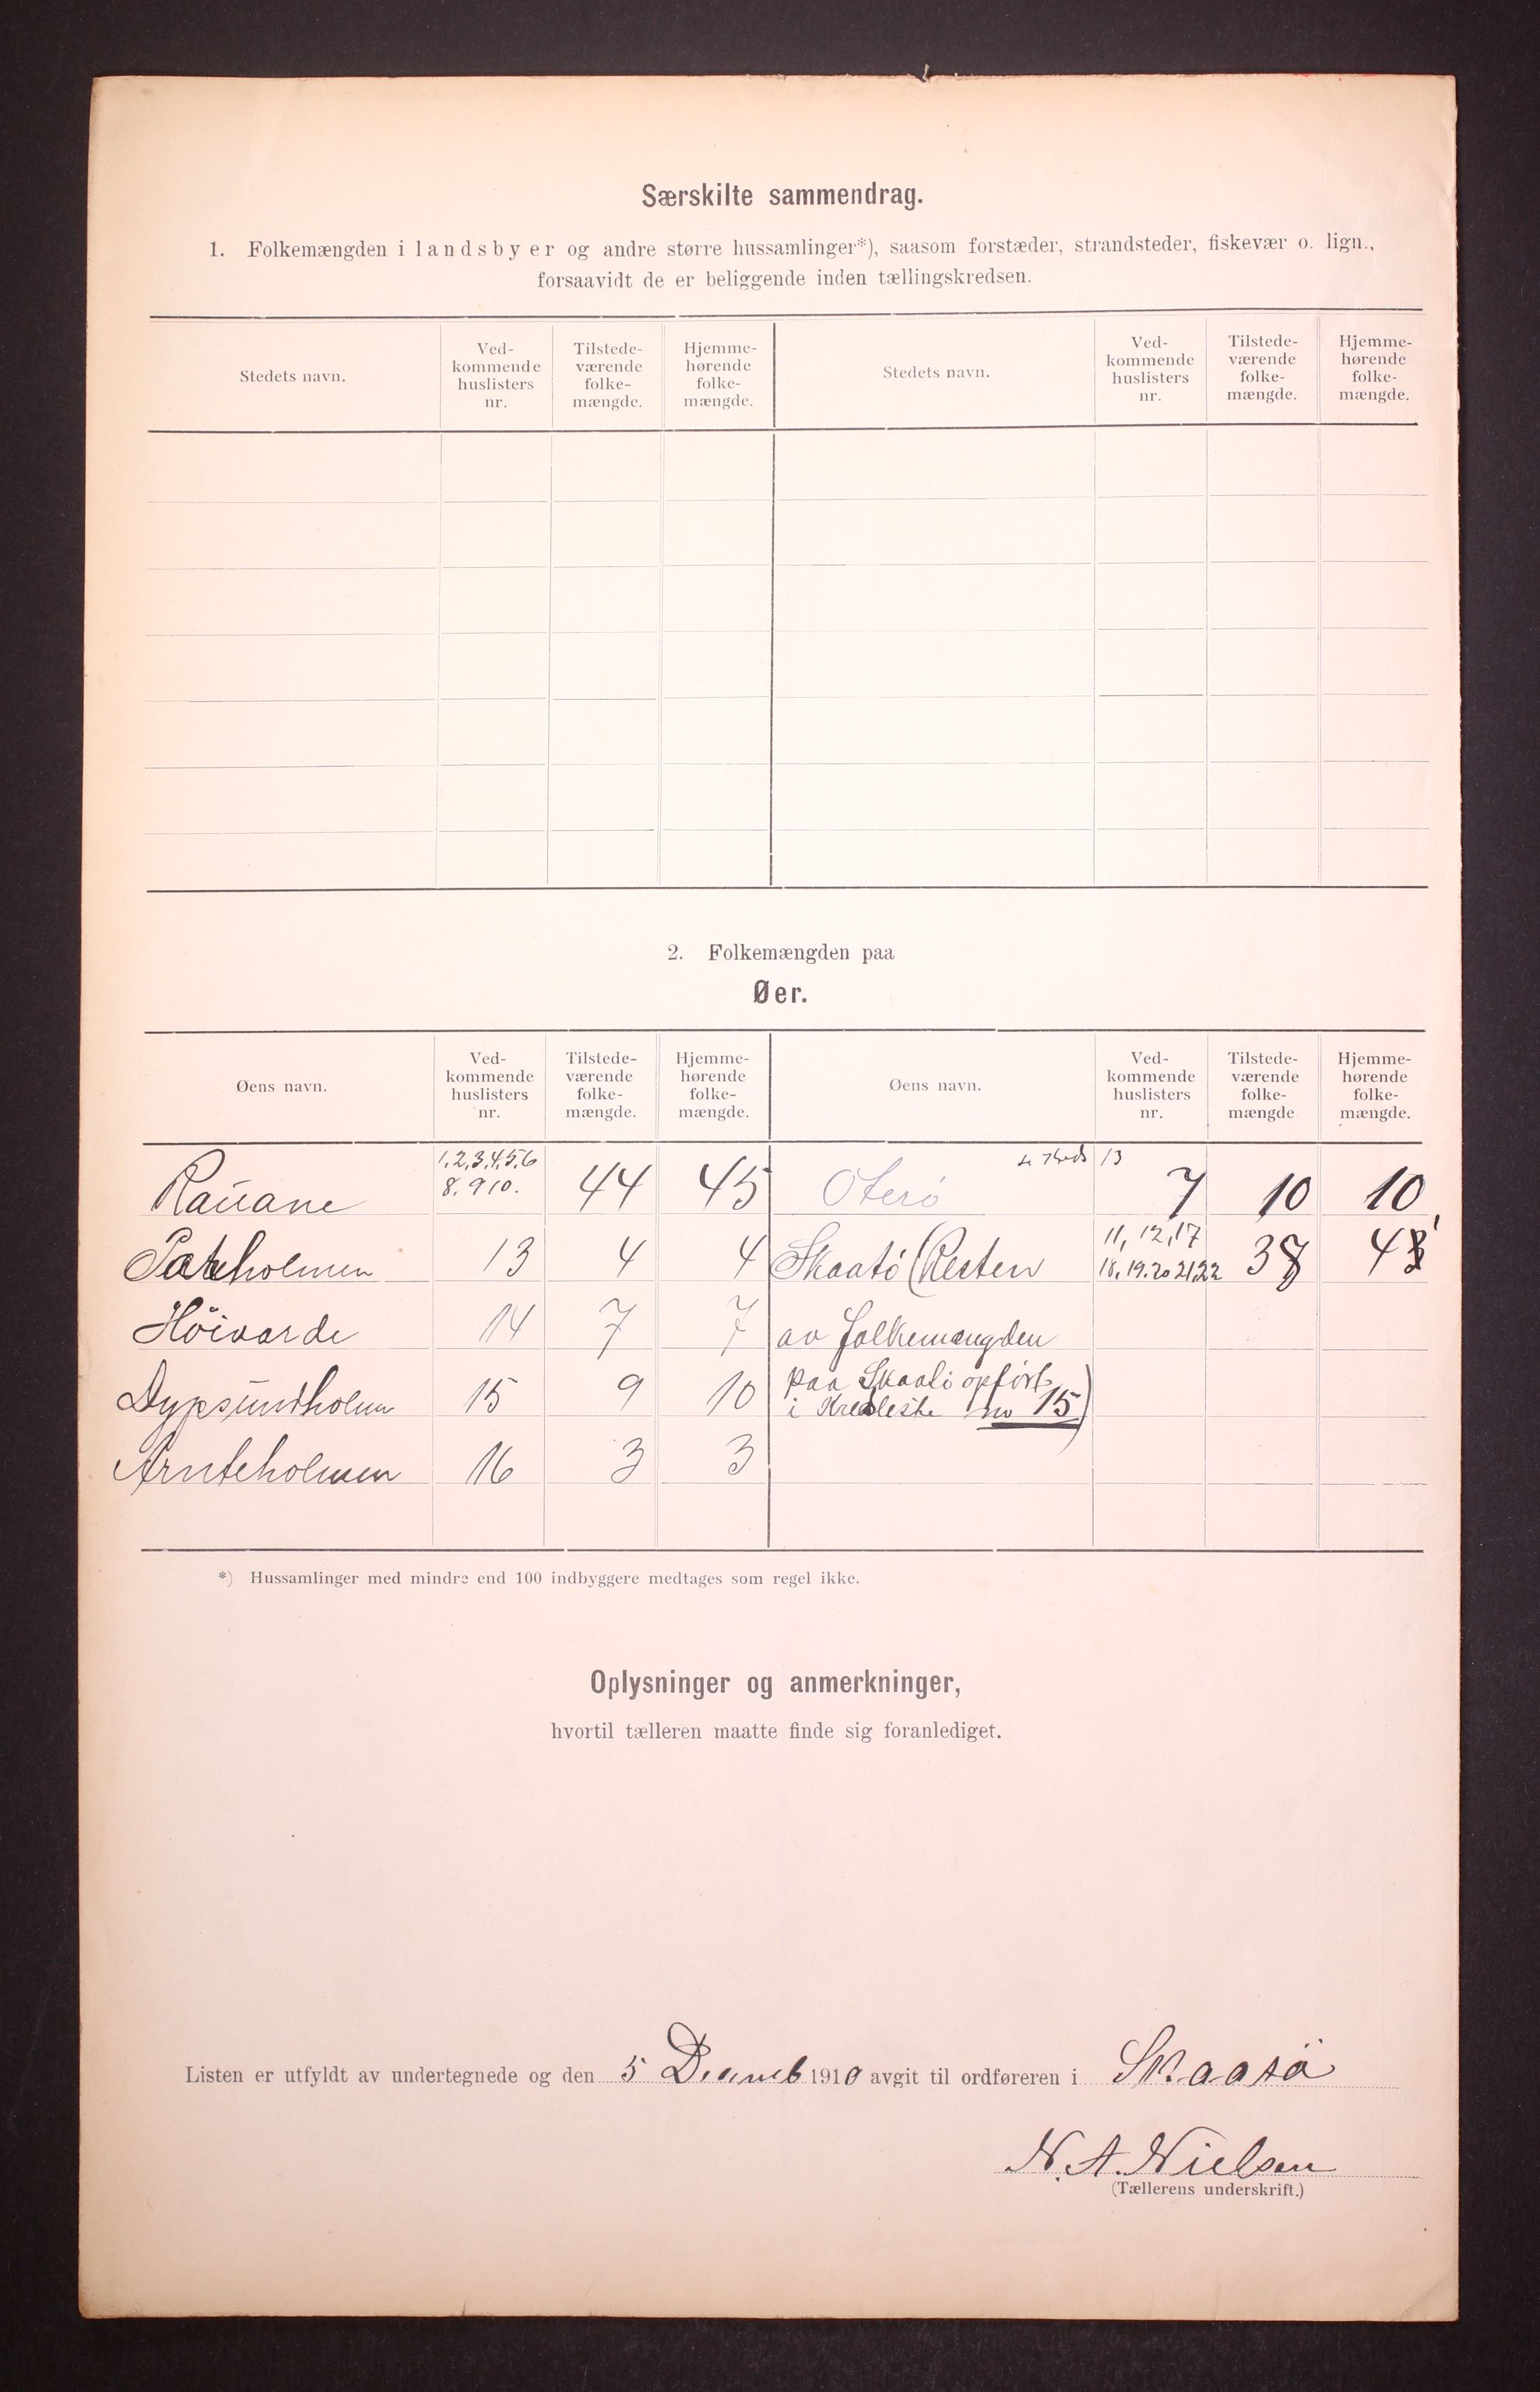 Særskilte sammendrag.
1. Folkemængden i landsbyer og andre større hussamlinger*), saasom forstæder, strandsteder, fiskevær o. lign.,
forsaavidt de er beliggende inden tællingskredsen.
Stedets navn. Ved-kommende huslisters nr. Tilstede-værende folke-mængde. Hjemme-hørende folke-mængde. Stedets navn. Ved-kommende huslisters nr. Tilstede-værende folke-mængde. Hjemme-hørende folke-mængde.
2. Folkemængden paa
Øer.
Øens navn. Ved-kommende huslisters nr. Tilstede-værende folke-mængde. Hjemme-hørende folke-mængde. Øens navn. Ved-kommende huslisters nr. Tilstede-værende folke-mængde Hjemme-hørende folke-mængde.
Rauane 1,2,3,4,5,6 8,9 10. 44 45 Oterö 13 7 10 10
holmen 13 4 4 Skaatö (Resten 11, 12, 17 18, 19. 20 21,22 38 4
Höivarde 14 7 7 av folkemængden
Dypsundholm 15 9 10 paa Skaatö opført
i Kredsliste no 15)
Arnteholmen 16 3 3
*) Hussamlinger med mindre end 100 indbyggere medtages som regel ikke.
Oplysninger og anmerkninger,
hvortil tælleren maatte finde sig foranlediget.
Listen er utfyldt av undertegnede og den 5 Decemb 1910 avgit til ordføreren i Skaatö
N. A. Nielsen
(Tællerens underskrift.)